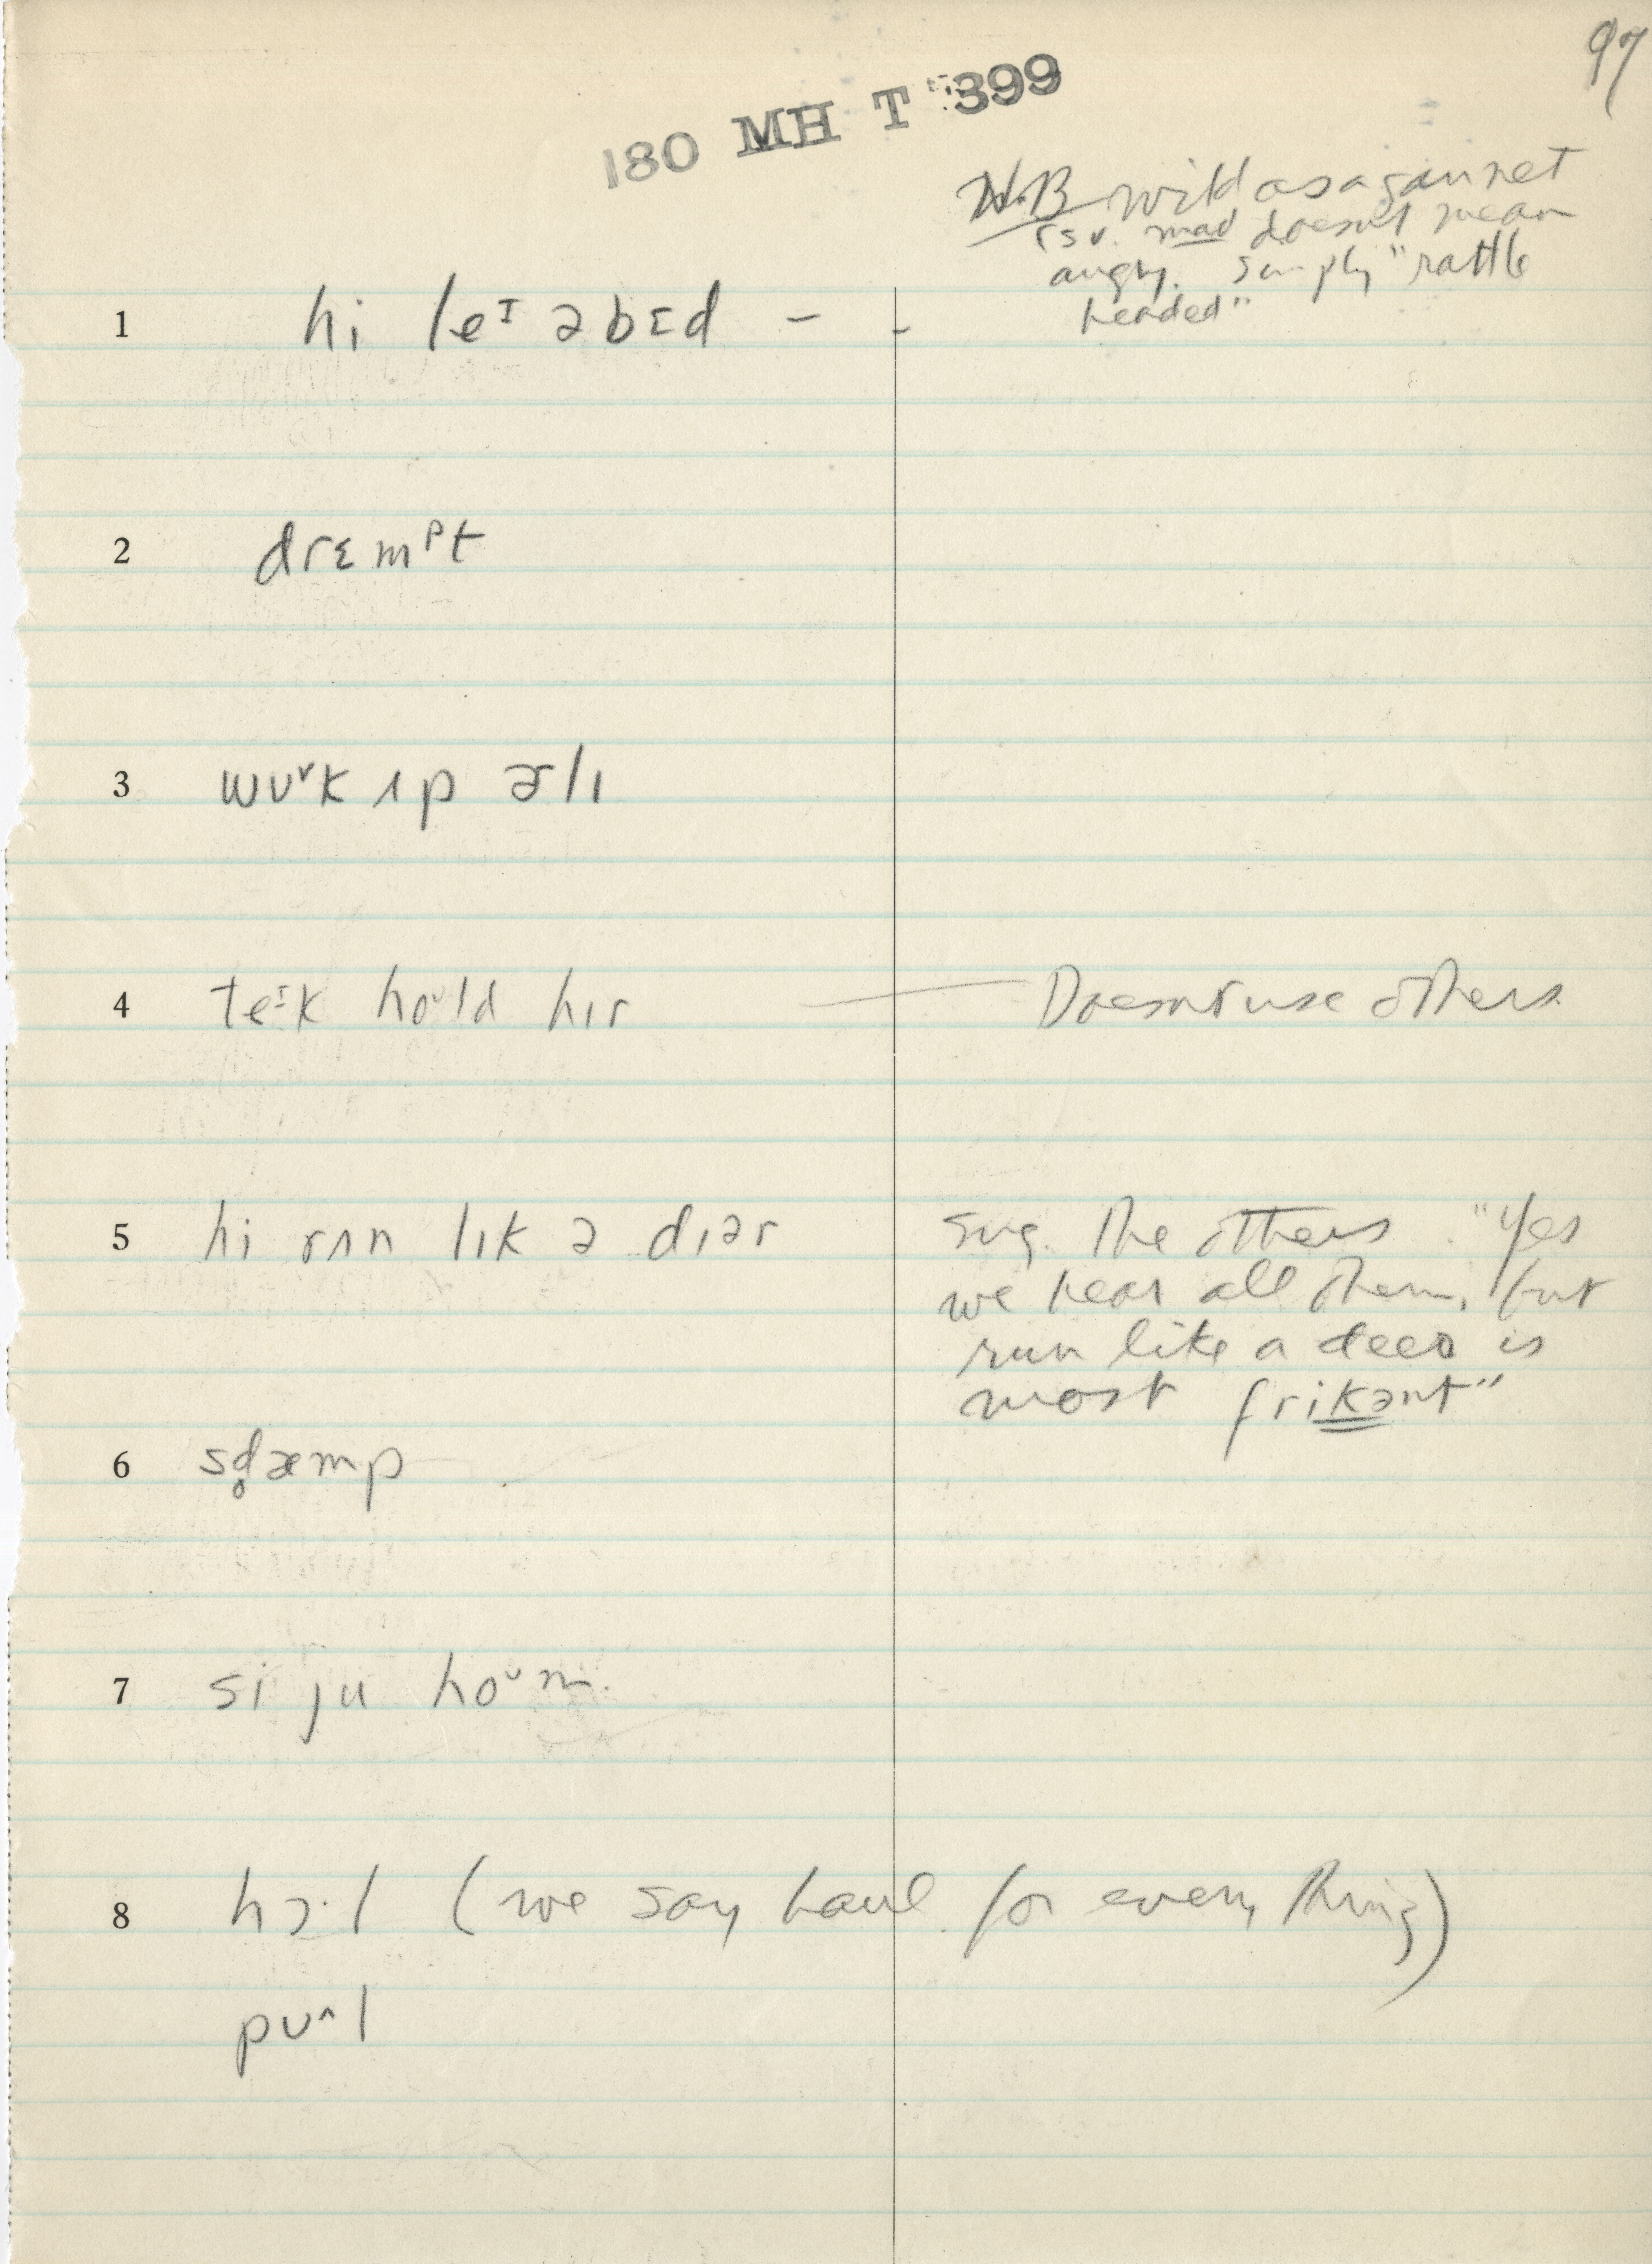 97
180 MH T 399
N.B. wild as a gannet
mad doesn't mean
angry. Simply "rattle
headed"
1 hi leᶦ əbɛd - -
2 drɛmᵖt
3 wʊ˅k ʌp ɚlɪ
4 teᶦk hoᶷld hɪr — Doesn't use others
5 hi rʌn lɪk ə dɪər
sug. the others. "Yes
we hear all them, but
run like a deer is
most frikənt"
6 sd̥æmp
7 si ju hoᶷm.
8 hɔ·l (we say haul for everything)
pʊ^l